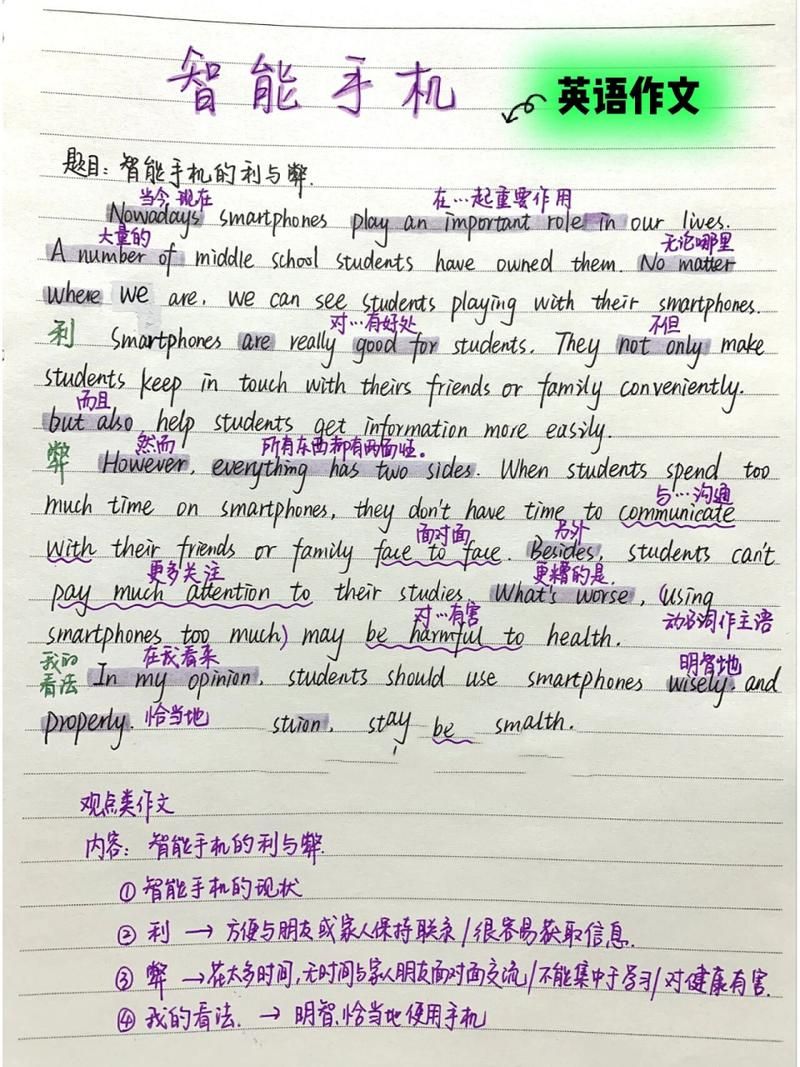 智能手机
英语作文
题目：智能手机的利与弊.
当今,现在 在…起重要作用
Nowadays smartphones play an important role in our lives.
大量的 无论哪里
A number of middle school students have owned them. No matter
where we are, we can see students playing with their smartphones.
利 对…有好处 不但
Smartphones are really good for students. They not only make
students keep in touch with theirs friends or family conveniently.
而且
but also help students get information more easily.
弊 然而 所有东西都有两面性。
However, everything has two sides. When students spend too
与…沟通
much time on smartphones, they don't have time to communicate
面对面 另外
with their friends or family face to face. Besides, students can't
更多关注 更糟的是.
pay much attention to their studies. What's worse, (using
对…有害 动名词作主语
smartphones too much) may be harmful to health.
我的看法 在我看来 明智地
In my opinion, students should use smartphones wisely and
properly. 恰当地 stay be
观点类作文
内容：智能手机的利与弊.
①智能手机的现状
②利 → 方便与朋友或家人保持联系/很容易获取信息.
③弊 →花太多时间,无时间与家人朋友面对面交流/不能集中于学习/对健康有害.
④我的看法. → 明智、恰当地使用手机